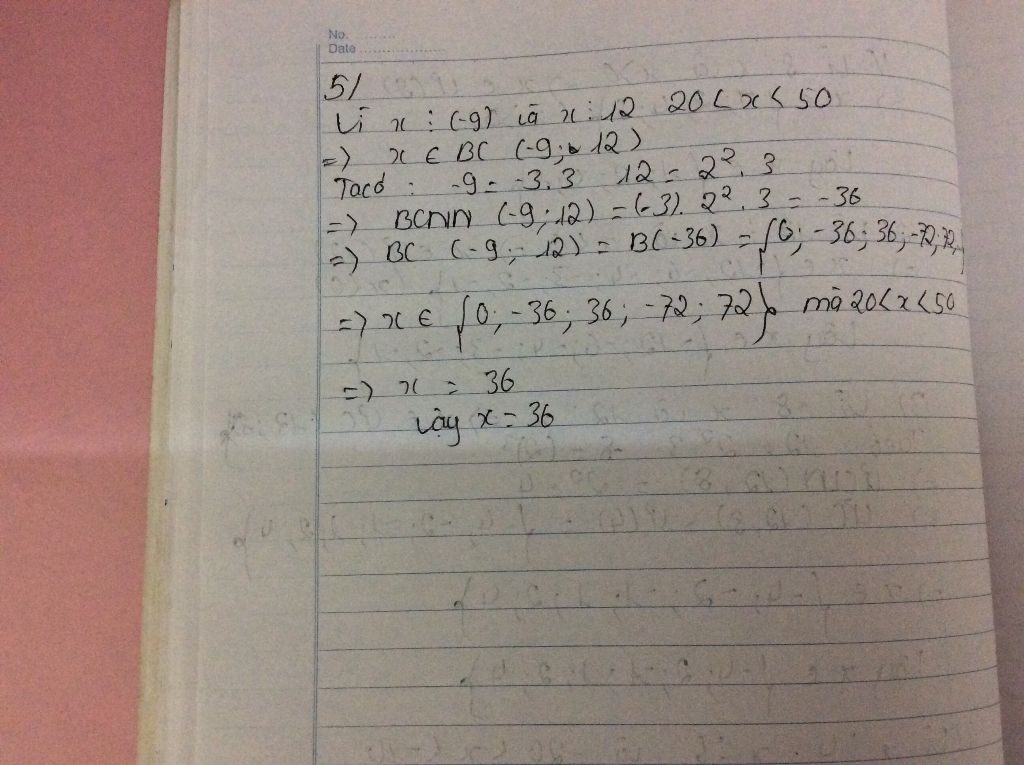 No. ..........
Date ......................
5/
Vì x ⋮ (-9) và x ⋮ 12 20 < x < 50
=> x ∈ BC (-9; 12)
Ta có : -9 = -3.3 12 = 2². 3
=> BCNN (-9; 12) = (-3). 2². 3 = -36
=> BC (-9; 12) = B(-36) = {0; -36; 36; -72; 72...}
=> x ∈ {0; -36; 36; -72; 72}. mà 20 < x < 50
=> x = 36
Vậy x = 36